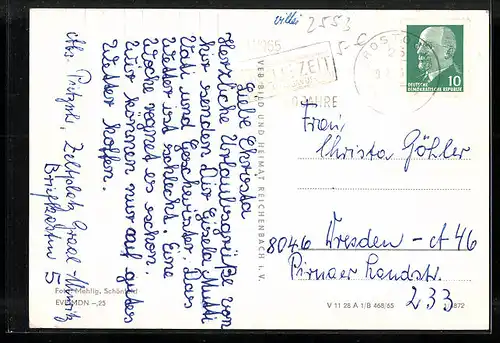 villei 2553
5-€
ROSTOCK
DEUTSCHE
DEMOKRATISCHE REPUBLIK
10
Liebe Christa
Herzliche Urlaubsgrüße von
hier senden Dir Gisela Mutti
Vati und Geschwister. Das
Wetter ist schlecht. Eine
Woche regnet es schon.
Wir können nur auf gutes
Wetter hoffen.
Abs. Zeltplatz Graal-Müritz
Briefkasten 5
Foto: Mahlig, Schönfeld
EVP MDN -,25
VEB BILD UND HEIMAT REICHENBACH I. V.
ZEIT
JAHRE
Frau
Christa Göhler
8046 Dresden - A 46
Pirnaer Landstr.
233
V 11 28 A 1/B 468/65
872